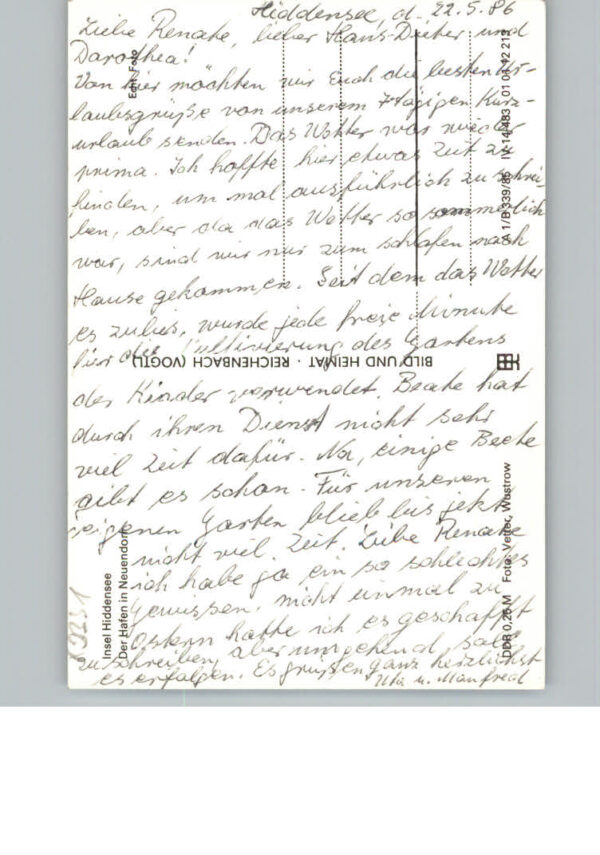 Hiddensee, d. 22.5.86
Liebe Renate, lieber Hans-Dieter und
Darothea!
Von hier möchten wir Euch die besten Ur-
laubsgrüße von unserem 7tägigen Kurz-
urlaub senden. Das Wetter war wieder
prima. Ich hoffte hier etwas Zeit zu
finden, um mal ausführlich zu schrei-
ben, aber da das Wetter so sommerlich
war, sind wir nur zum schlafen nach
Hause gekommen. Seit dem das Wetter
es zulies, wurde jede freie Minute
für die Kultivierung des Gartens
der Kinder verwendet. Beate hat
durch ihren Dienst nicht sehr
viel Zeit dafür. Na, einige Beete
gibt es schon. Für unseren
eigenen Garten blieb bis jetzt
nicht viel Zeit. Liebe Renate
ich habe ja ein so schlechtes
Gewissen, nicht einmal zu
Ostern hatte ich es geschafft
zu schreiben, aber umgehend soll
es erfolgen. Es grüßen ganz herzlichst
Uta u. Manfred
Echt Foto
BILD UND HEIMAT · REICHENBACH (VOGTL)
A 1/B 339/86 IV-14-483 01 01 12 213
Insel Hiddensee
Der Hafen in Neuendorf
DDR 0,26 M Foto: Vetter, Wustrow